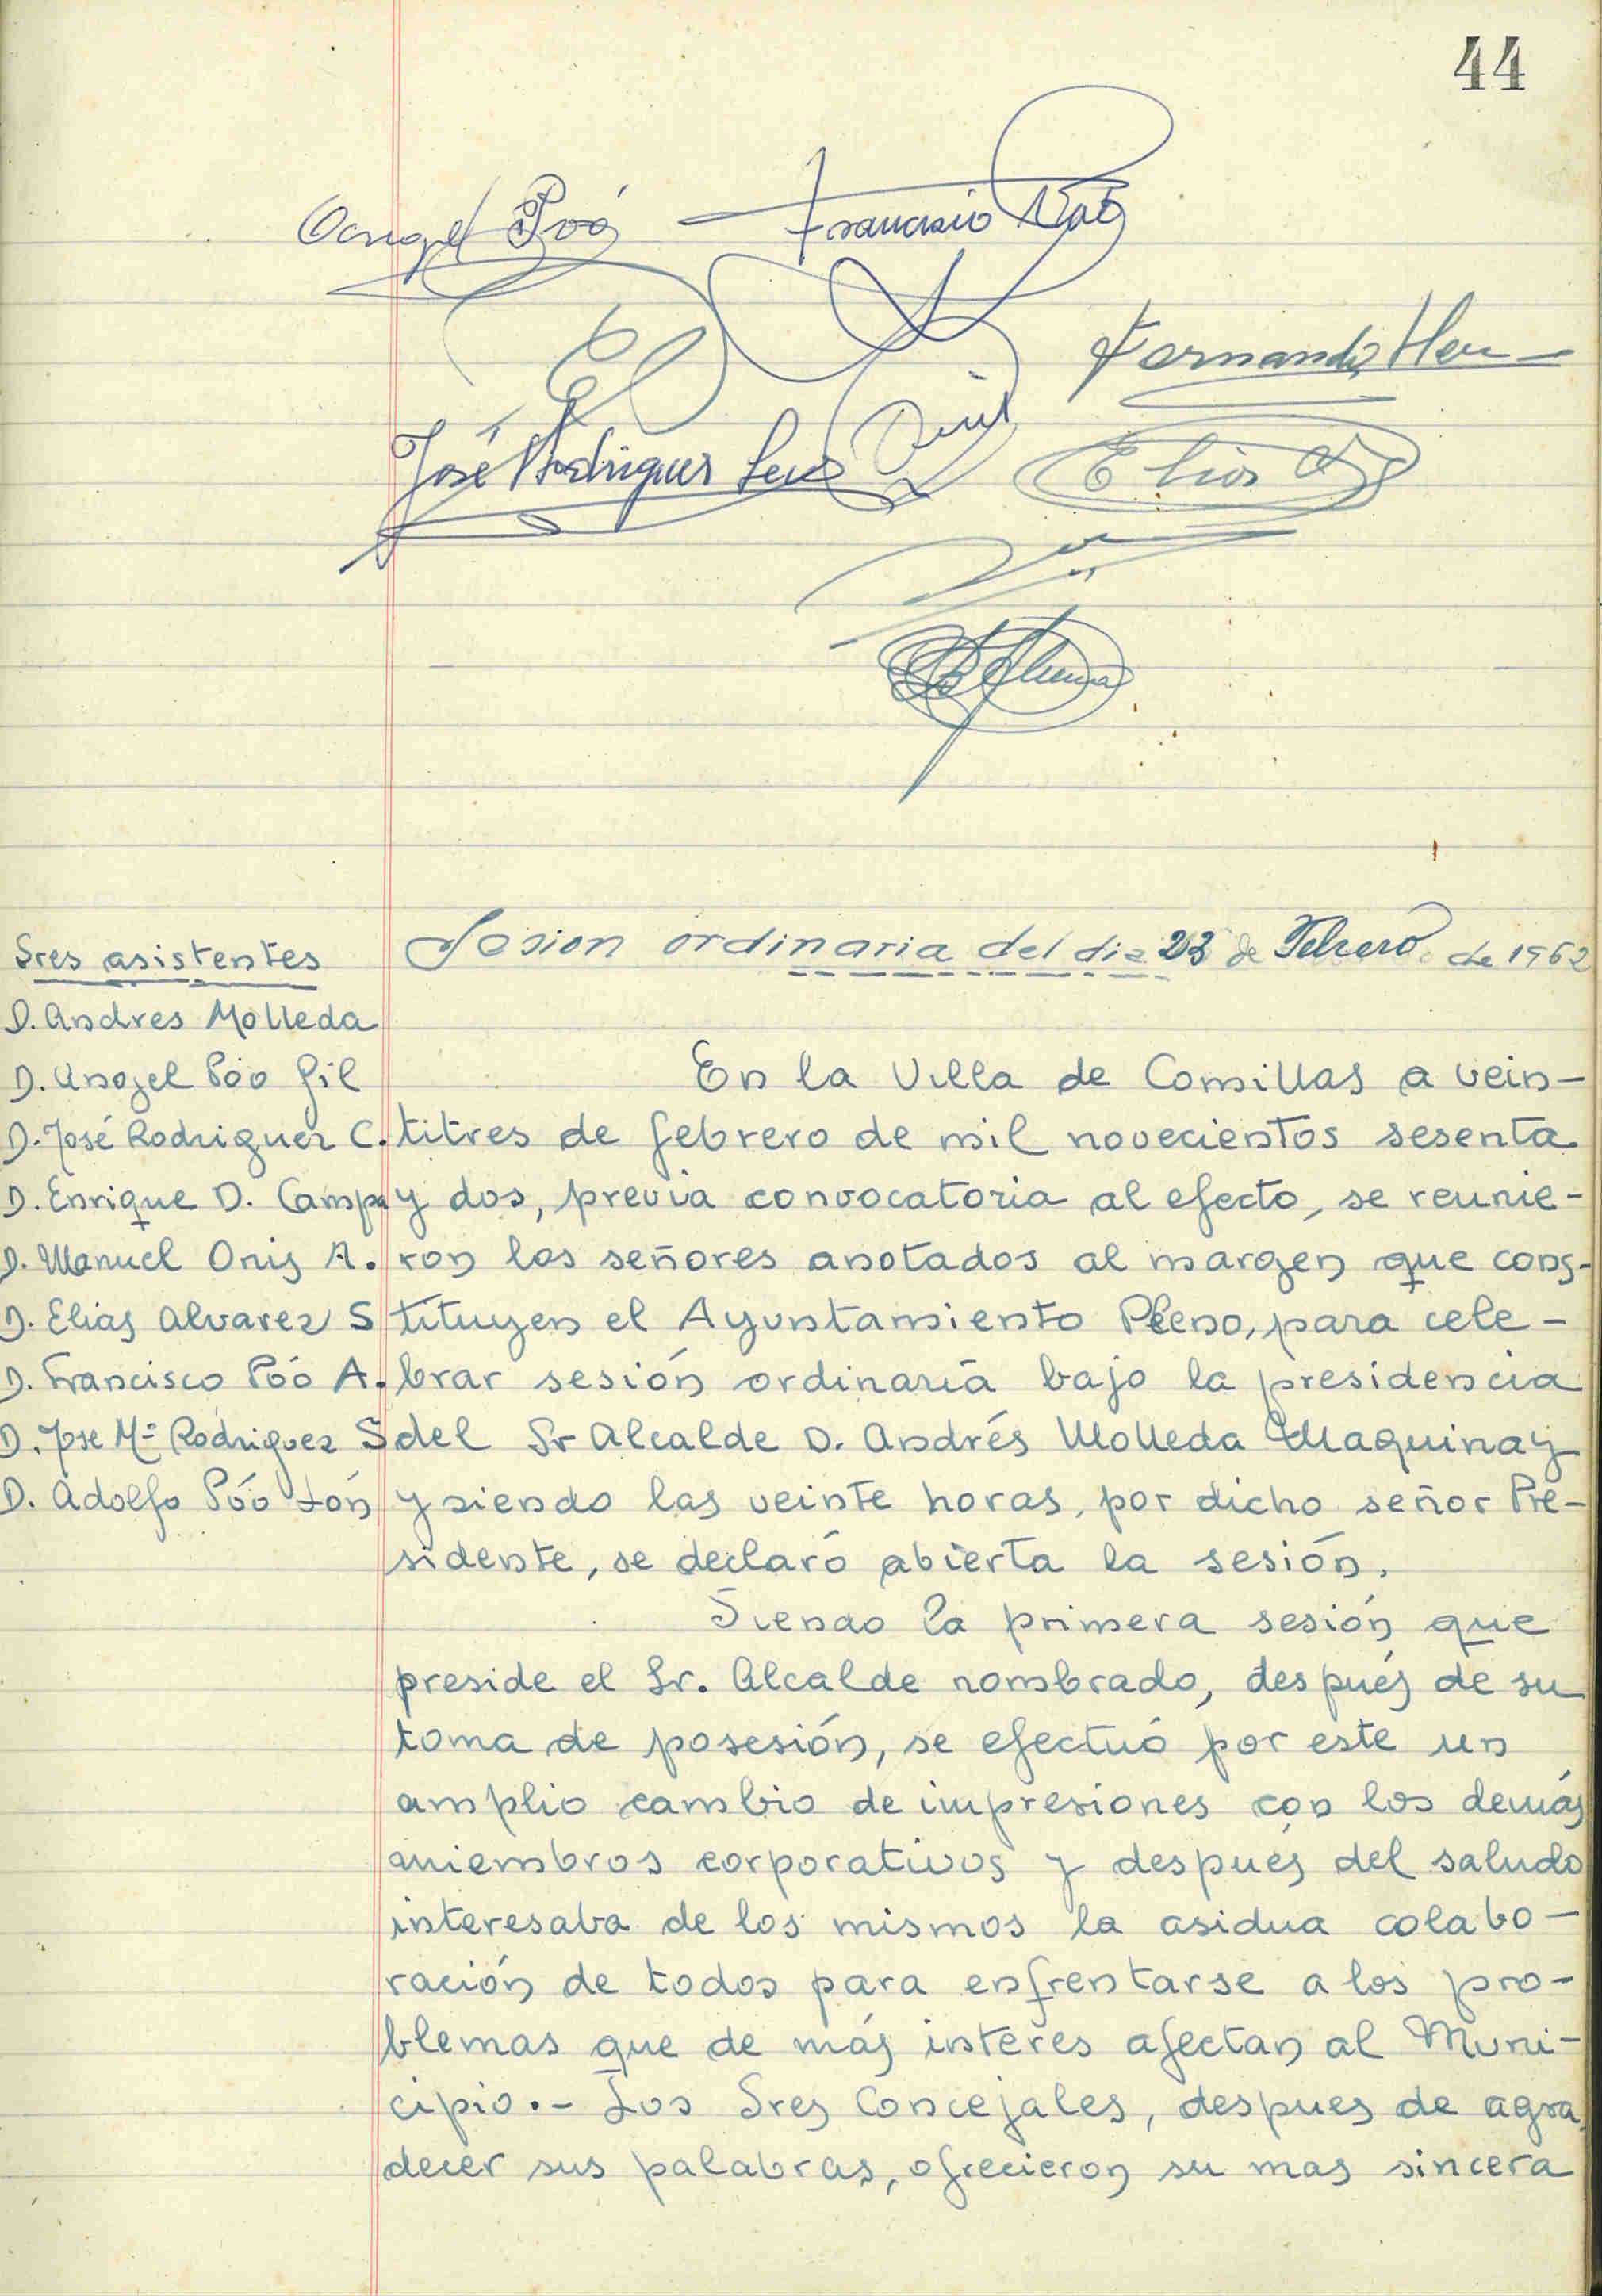 44
Angel Póo
Francisco
Fernando
José Rodriguez
Elias
Sres asistentes
D. Andres Molleda
D. Angel Póo Gil
D. José Rodriguez C.
D. Enrique D. Campa
D. Manuel Oris A.
D. Elias Alvarez S
D. Francisco Póo A.
D. Jose Mª Rodriguez S
D. Adolfo Póo
Sesion ordinaria del dia 23 de Febrero de 1962
En la Villa de Comillas a vein-
titres de febrero de mil novecientos sesenta
y dos, previa convocatoria al efecto, se reunie-
ron los señores anotados al margen que cons-
tituyen el Ayuntamiento Pleno, para cele-
brar sesión ordinaria bajo la presidencia
del Sr Alcalde D. Andrés Molleda Maquinay
y siendo las veinte horas, por dicho señor Pre-
sidente, se declaró abierta la sesión.
Siendo la primera sesión que
preside el Sr. Alcalde nombrado, después de su
toma de posesión, se efectuó por este un
amplio cambio de impresiones con los demás
miembros corporativos y después del saludo
interesaba de los mismos la asidua colabo-
ración de todos para enfrentarse a los pro-
blemas que de más interes afectan al Muni-
cipio.- Los Sres Concejales, despues de agra
decer sus palabras, ofrecieron su mas sincera